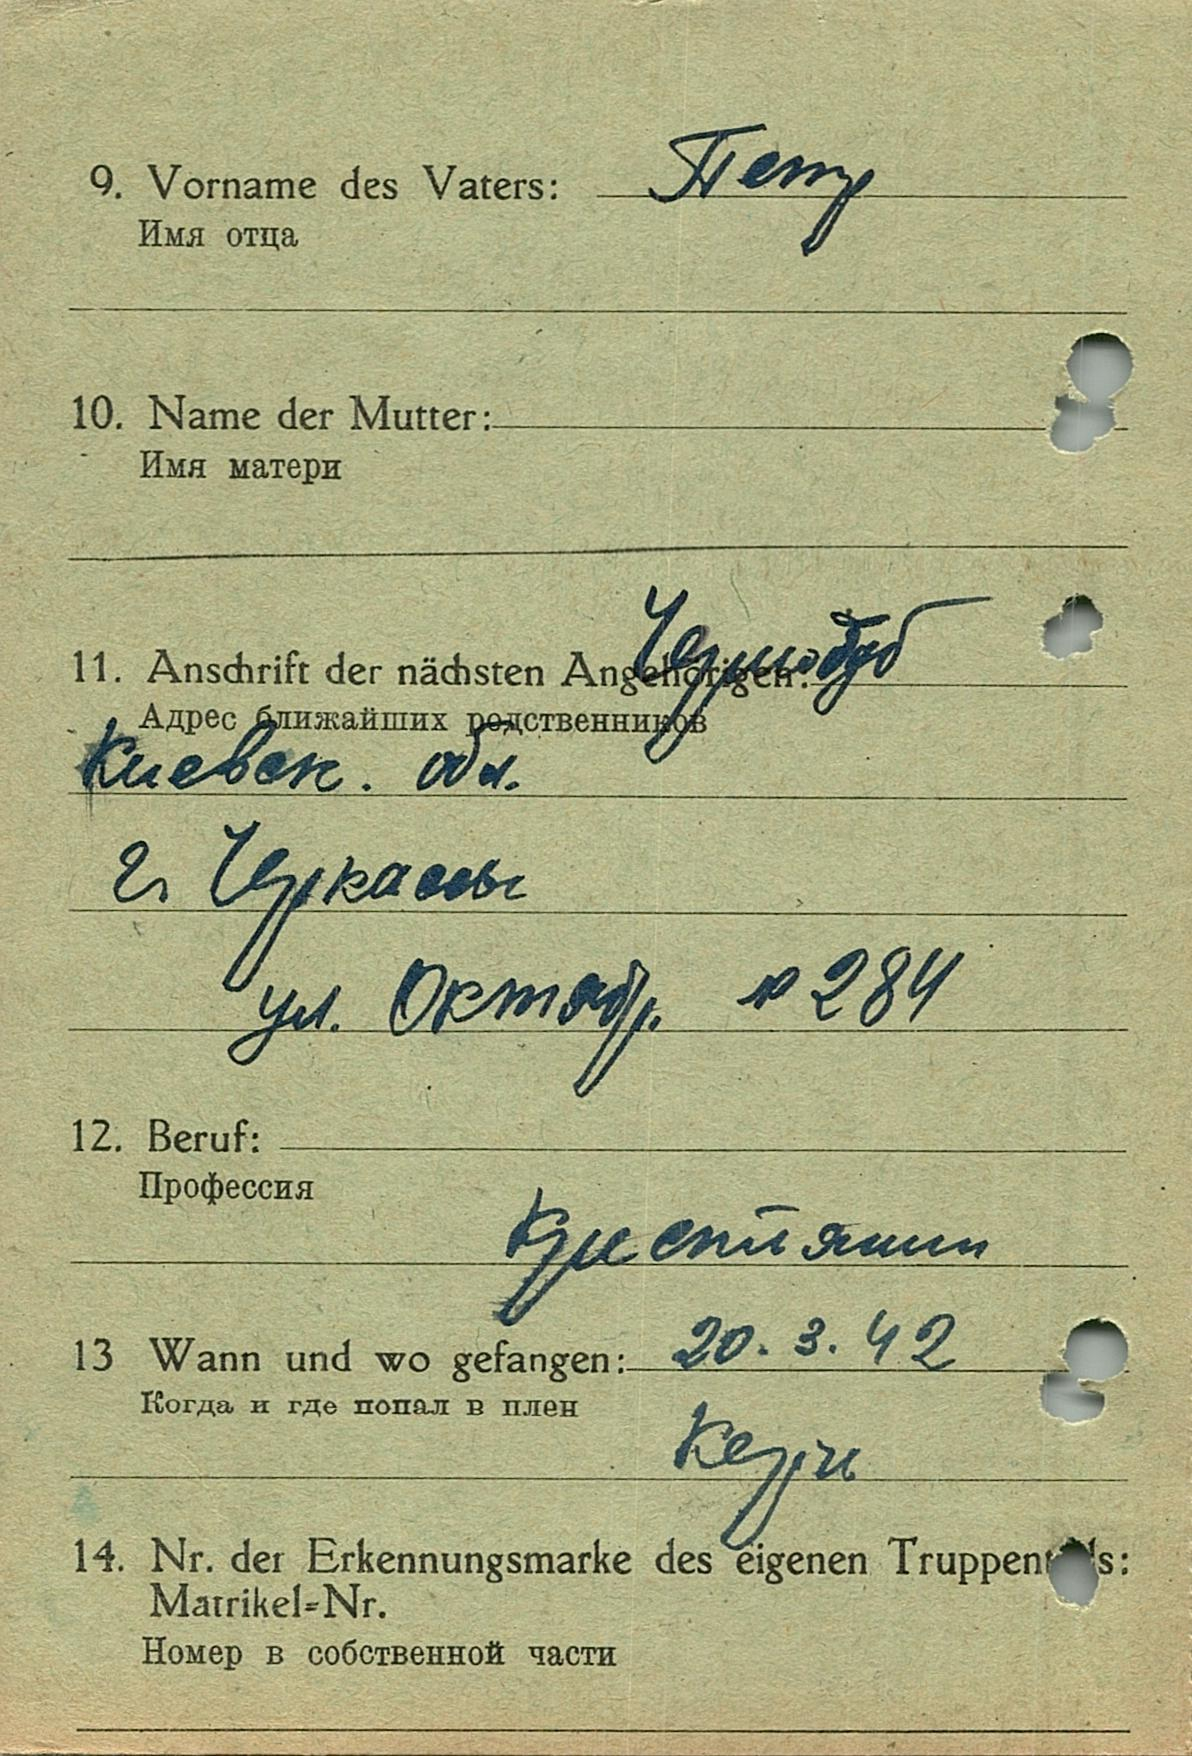 9. Vorname des Vaters: Петр
Имя отца
10. Name der Mutter:
Имя матери
11. Anschrift der nächsten Angehörigen:
Адрес ближайших родственников
Киевск. обл.
г. Черкассы
ул. Октябр. № 284
12. Beruf:
Профессия
Крестянин
13 Wann und wo gefangen: 20. 3. 42
Когда и где попал в плен
Керчи
14. Nr. der Erkennungsmarke des eigenen
Matrikel=Nr.
Номер в собственной части